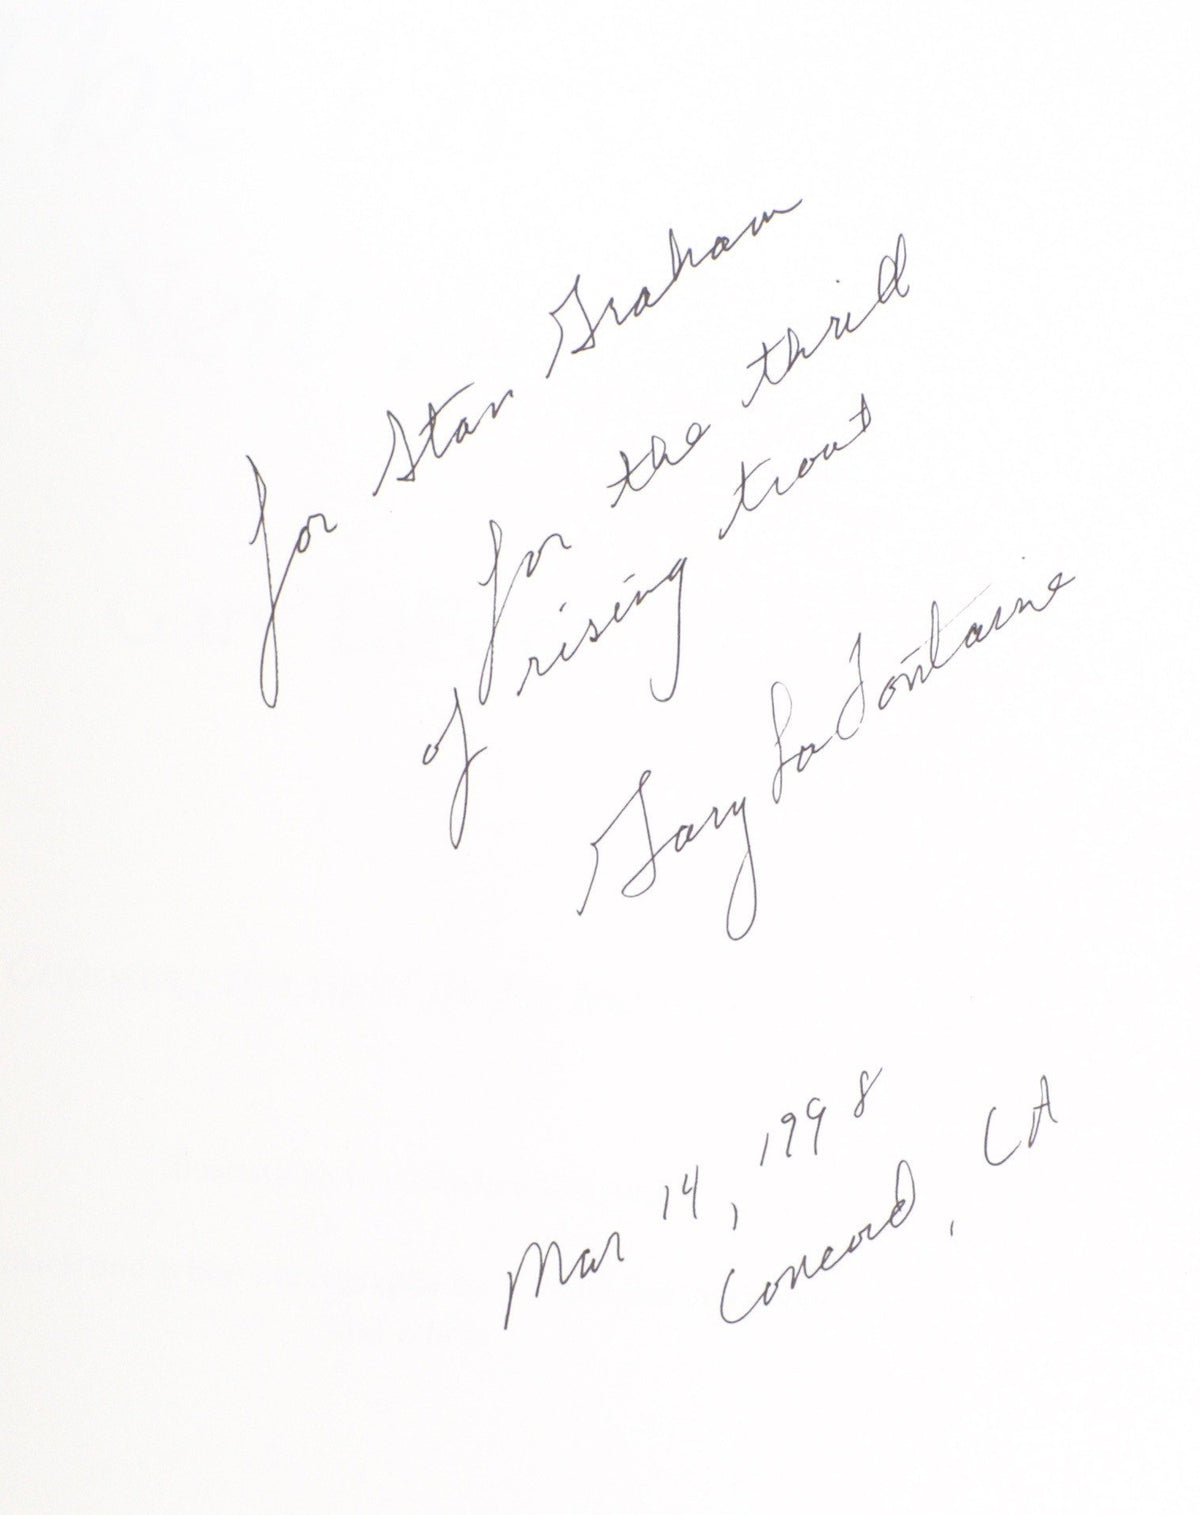 for Stan Graham
for the thrill
of rising trout
Gary LaFontaine
Mar 14, 1998
Concord, CA